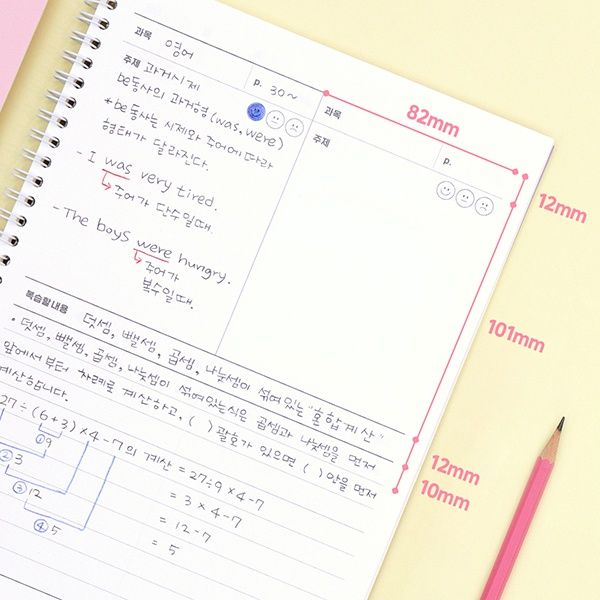 과목 영어
주제 과거시제
p. 30~
be동사의 과거형 (was, were)
* be동사는 시제와 주어에 따라
형태가 달라진다.
- I was very tired.
주어가 단수일때.
- The boys were hungry.
주어가
복수일때.
과목
주제
p.
82mm
12mm
101mm
12mm
10mm
복습할 내용 덧셈, 뺄셈, 곱셈, 나눗셈이 섞여있는 "혼합계산"
• 덧셈, 뺄셈, 곱셈, 나눗셈이 섞여있는식은 곱셈과 나눗셈을 먼저
앞에서부터 차례로 계산하고, ( ) 괄호가 있으면 ( ) 안을 먼저
계산합니다.
27÷(6+3)×4-7의 계산 = 27÷9×4-7
= 3×4-7
= 12-7
= 5
①9
②3
③12
④5